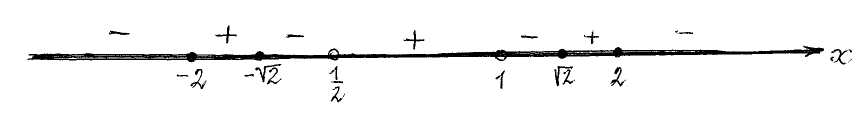 − + − + − + −
-2 -√2 1/2 1 √2 2 x